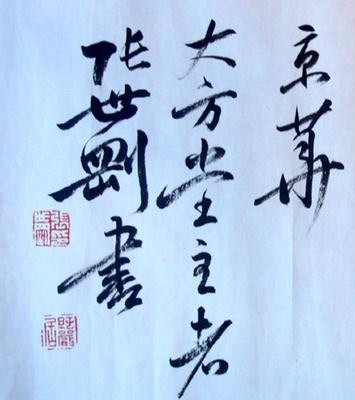 京華
大方堂主者
張世剛書